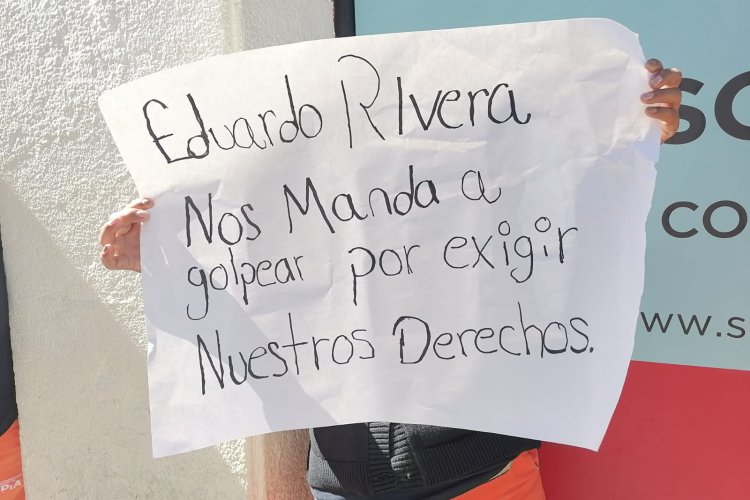 Eduardo RIvera
Nos Manda a
golpear por exigir
Nuestros Derechos.
so
co
ww.s
DIA